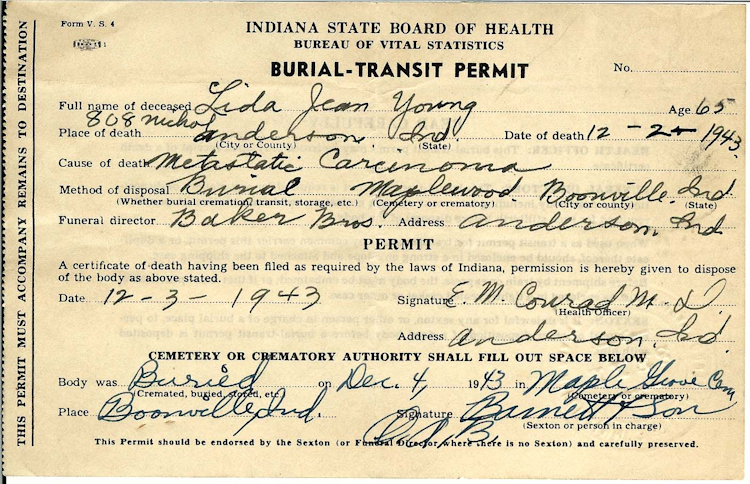 Form V. S. 4
INDIANA STATE BOARD OF HEALTH
BUREAU OF VITAL STATISTICS
BURIAL-TRANSIT PERMIT
No.
Full name of deceased Lida Jean Young Age 65
808 Nichol
Place of death Anderson, Ind Date of death 12-2- 1943
(City or County) (State)
Cause of death Metastatic Carcinoma
Method of disposal Burial Maplewood Boonville, Ind
(Whether burial cremation, transit, storage, etc.) (Cemetery or crematory) (City or county) (State)
Funeral director Baker Bros. Address Anderson, Ind
PERMIT
A certificate of death having been filed as required by the laws of Indiana, permission is hereby given to dispose
of the body as above stated.
Date 12-3-1943 Signature E. M. Conrad M. D.
(Health Officer)
Address Anderson, Ind.
CEMETERY OR CREMATORY AUTHORITY SHALL FILL OUT SPACE BELOW
Body was Buried on Dec. 4, 1943 in Maple Grove Cem
(Cremated, buried, stored, etc.) (Cemetery or crematory)
Place Boonville, Ind. Signature Barnett & Son
(Sexton or person in charge)
This Permit should be endorsed by the Sexton (or Funeral Director where there is no Sexton) and carefully preserved.
THIS PERMIT MUST ACCOMPANY REMAINS TO DESTINATION